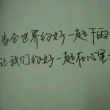 当全世界约好一起下雨
让我们约好一起在心里